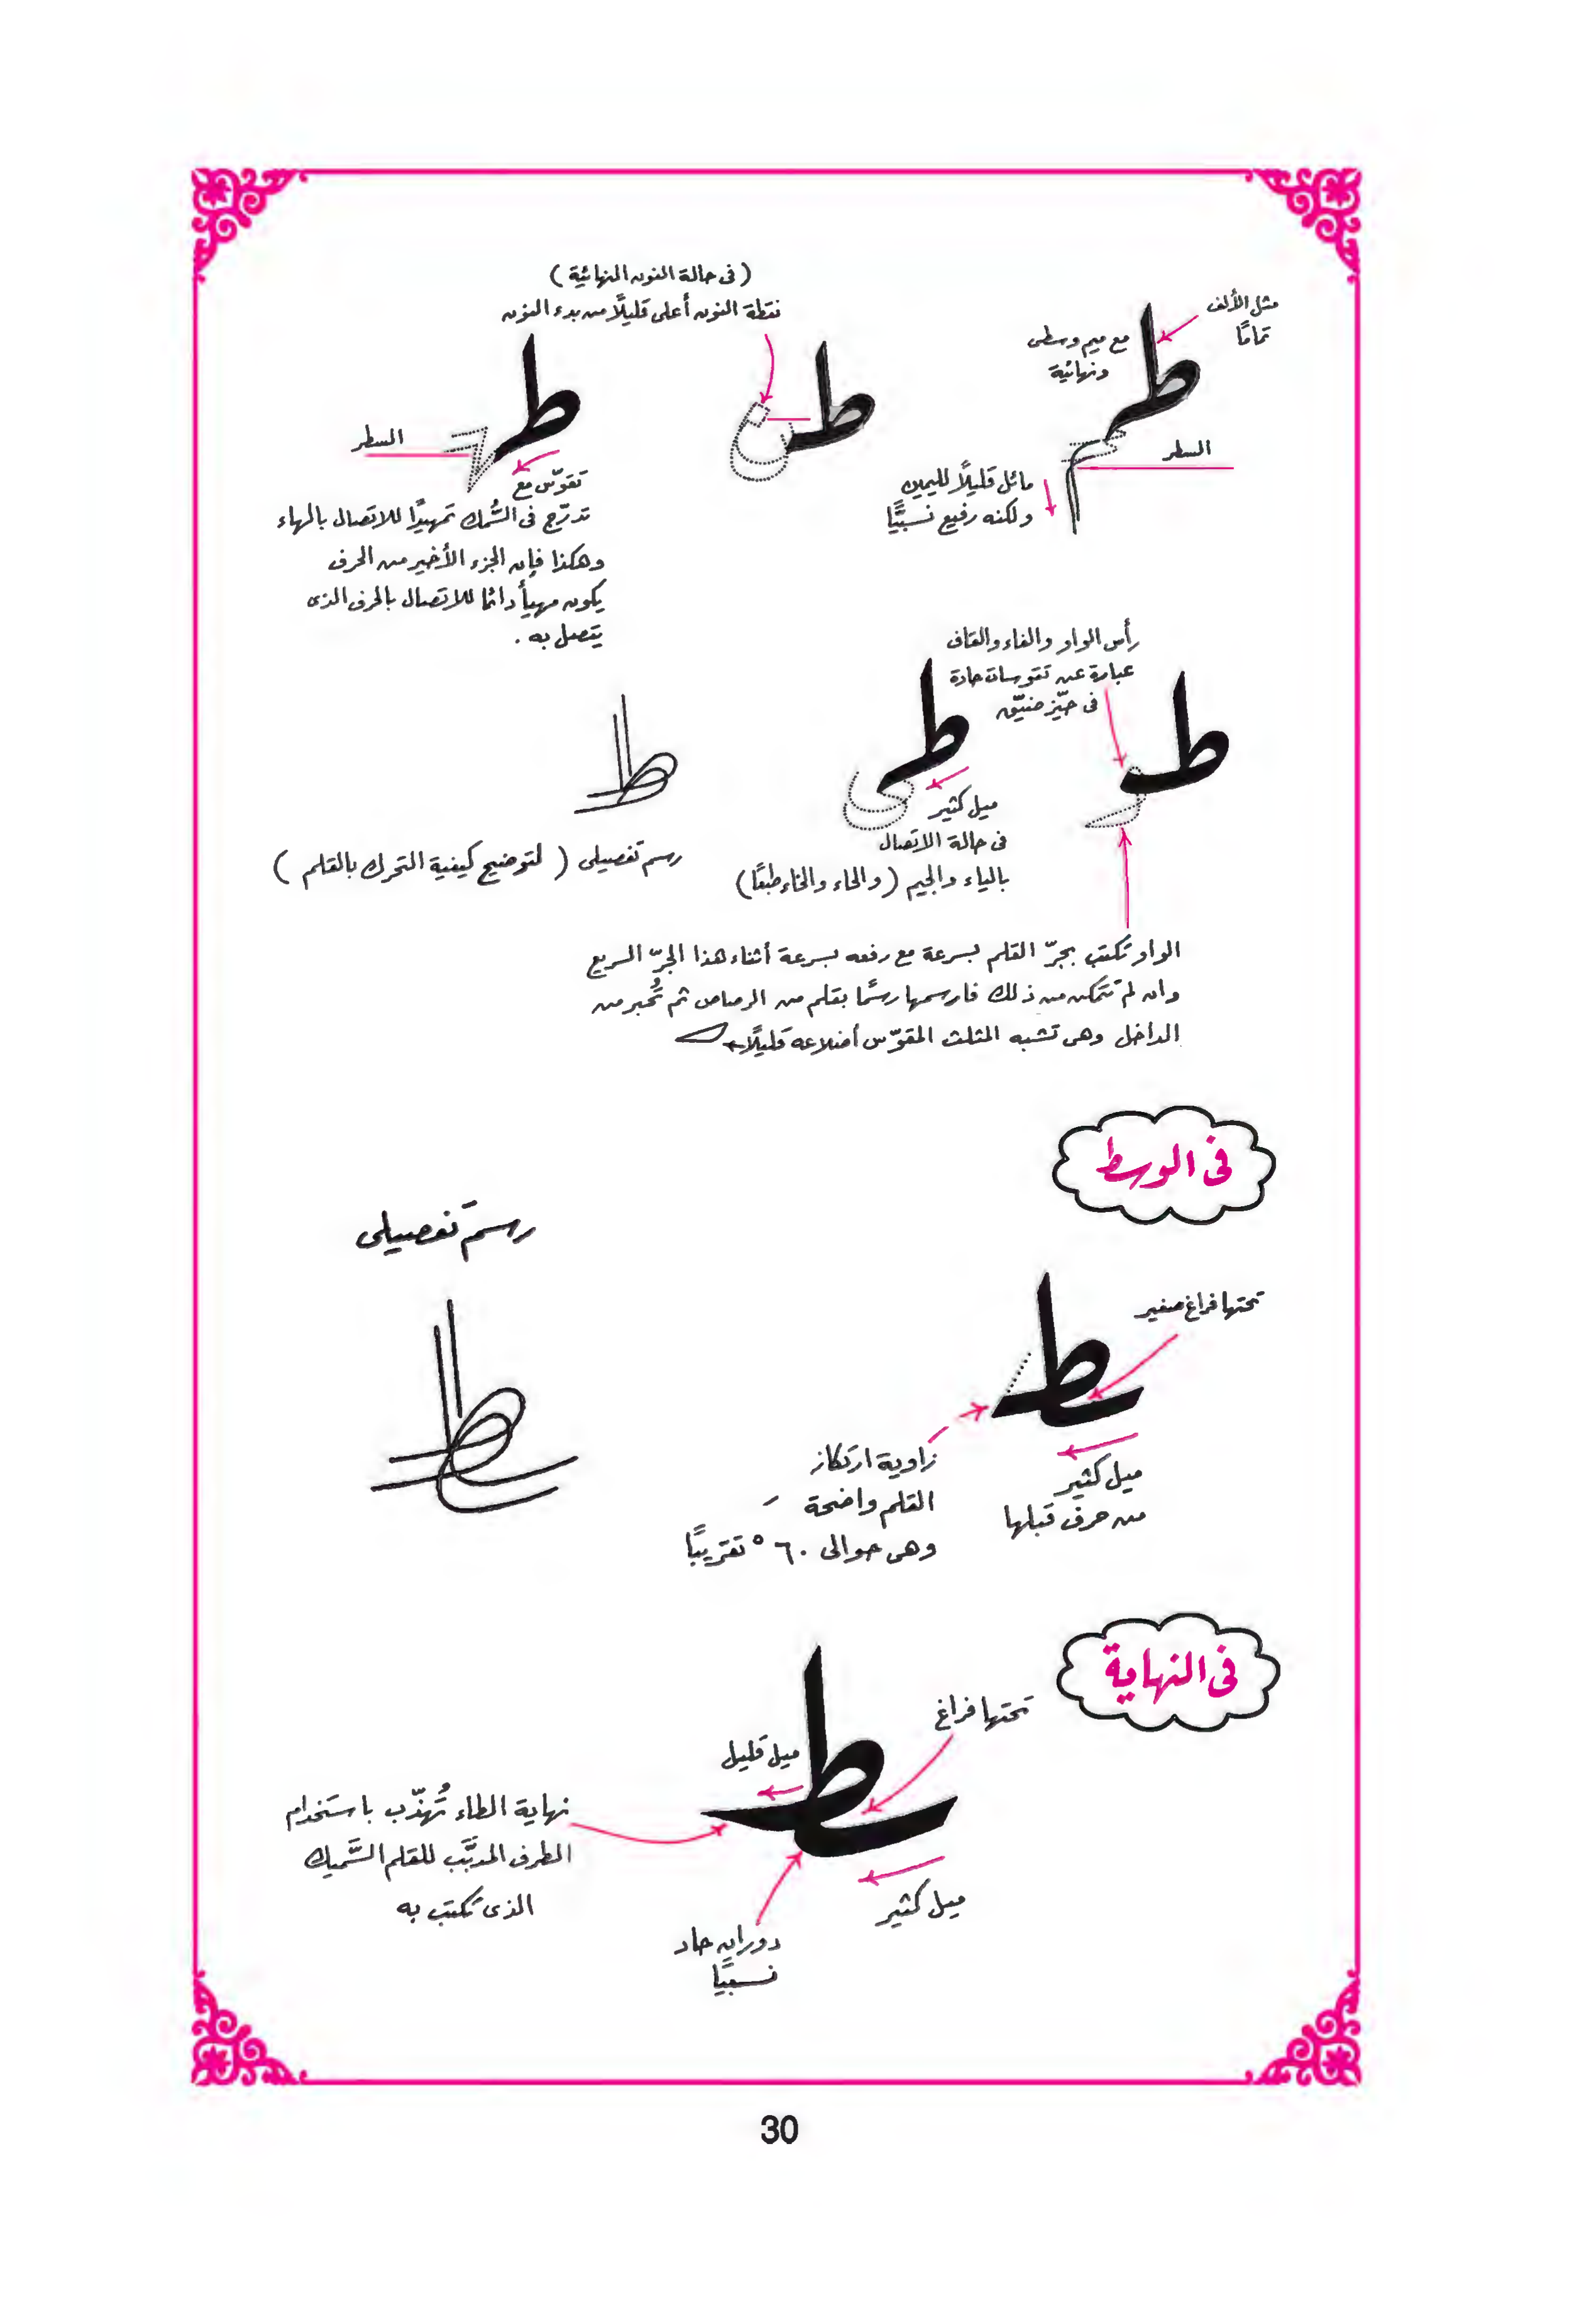 مثل الألف
تمامًا
مع ميم وسطى
ونهائية
السطر
مائل قليلًا لليمين
ولكنه رفيع نسبيًّا
(فى حالة النون النهائية)
نقطة النون أعلى قليلًا من بدء النون
السطر
تقوّس مع
تدرّج فى السُّمك تمهيدًا للاتصال بالهاء
وهكذا فإن الجزء الأخير من الحرف
يكون مهيأ دائما للاتصال بالحرف الذى
يتصل به .
رأس الواو والفاء والقاف
عبارة عن تقوسات حادة
فى حيّز ضيّق
ميل كثير
فى حالة الاتصال
بالياء والجيم (والحاء والخاء طبعًا)
رسم تفصيلى ( لتوضيح كيفية التحرك بالقلم )
الواو تكتب بجرّ القلم بسرعة مع رفعه بسرعة أثناء هذا الجرّ السريع
وان لم تتمكن من ذلك فارسمها رسمًا بقلم من الرصاص ثم تُحبر من
الداخل وهى تشبه المثلث المقوّس أضلاعه قليلًا
فى الوسط
رسم تفصيلى
تحتها فراغ صغير
زاوية ارتكاز
القلم واضحة
وهى حوالى ٦٠° تقريبًا
ميل كثير
من حرف قبلها
فى النهاية
تحتها فراغ
ميل قليل
نهاية الطاء تُهذّب باستخدام
الطرف المدبَّب للقلم السَّميك
الذى تكتب به
ميل كثير
دوران حاد
نسبيًا
30